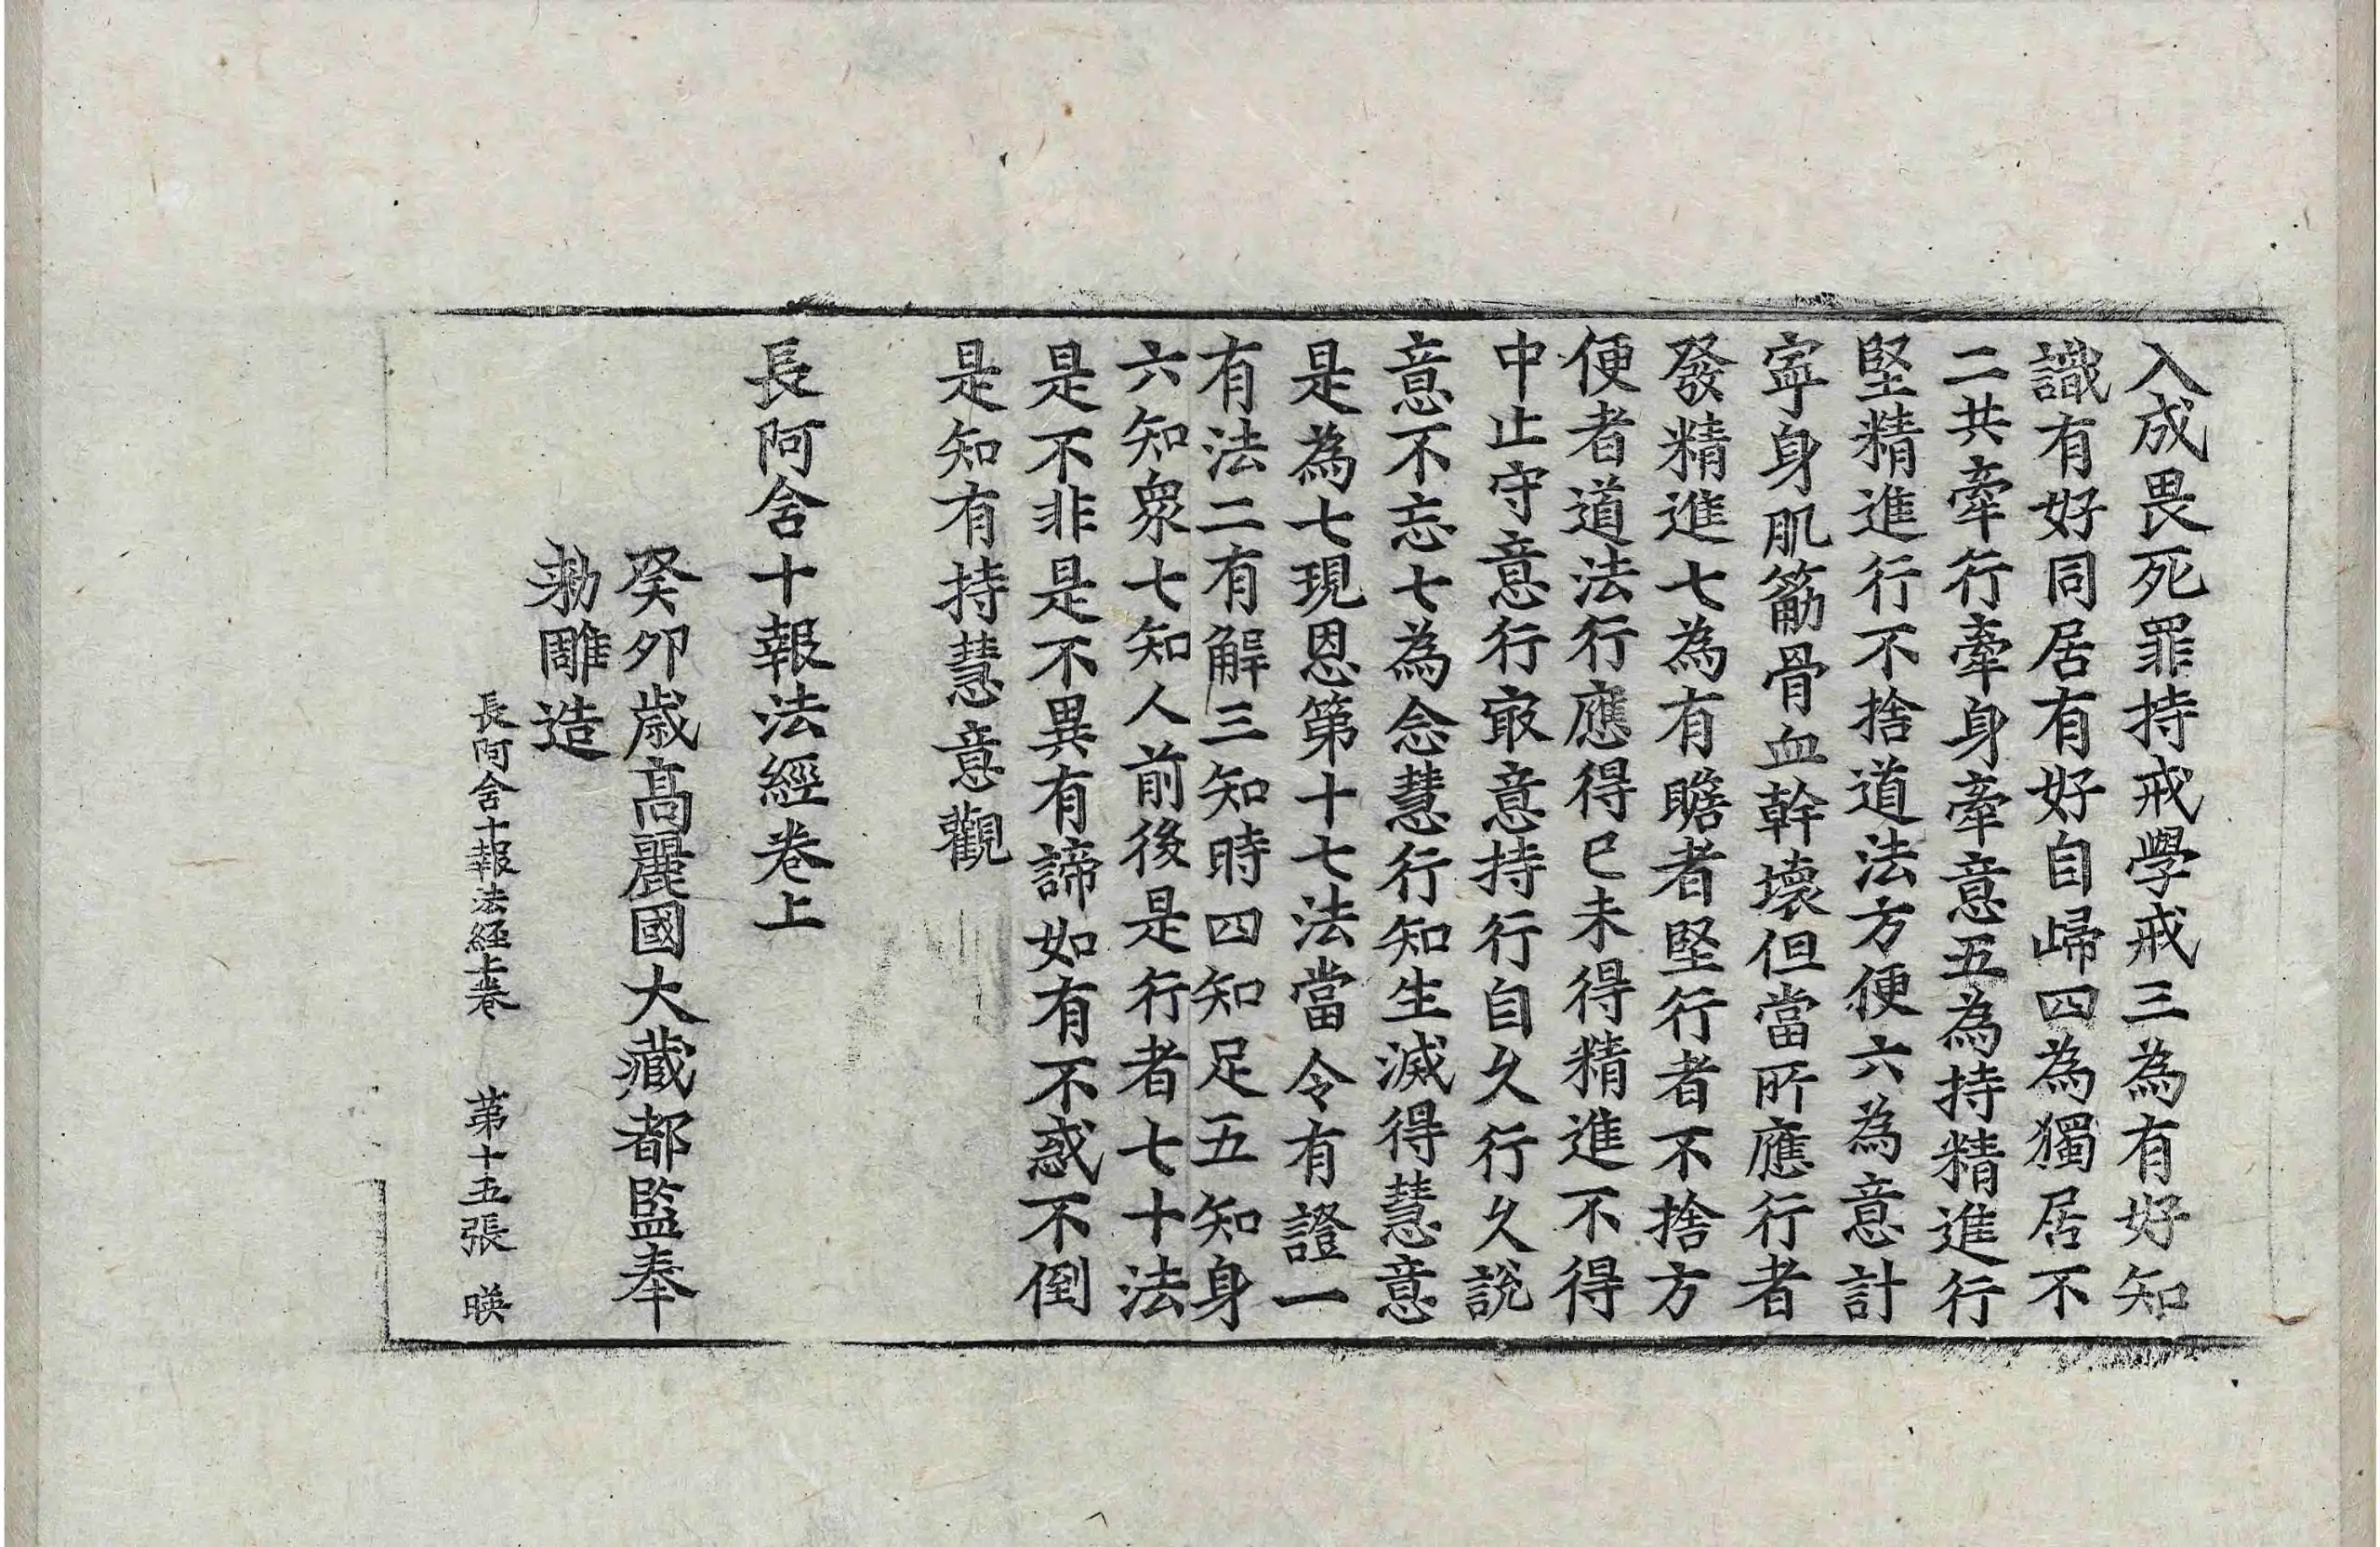 入成畏死罪持戒學戒三為有好知
識有好同居有好自歸四為獨居不
二共牽行牽身牽意五為持精進行
堅精進行不捨道法方便六為意計
寧身肌筋骨血幹壞但當所應行者
發精進七為有瞻者堅行者不捨方
便者道法行應得已未得精進不得
中止守意行㝡意持行自久行久說
意不忘七為念慧行知生滅得慧意
是為七現恩第十七法當令有證一
有法二有解三知時四知足五知身
六知眾七知人前後是行者七十法
是不非是不異有諦如有不惑不倒
是知有持慧意觀
長阿含十報法經卷上
癸卯歲高麗國大藏都監奉
勅雕造
長阿含十報法經上卷 第十五張 暎